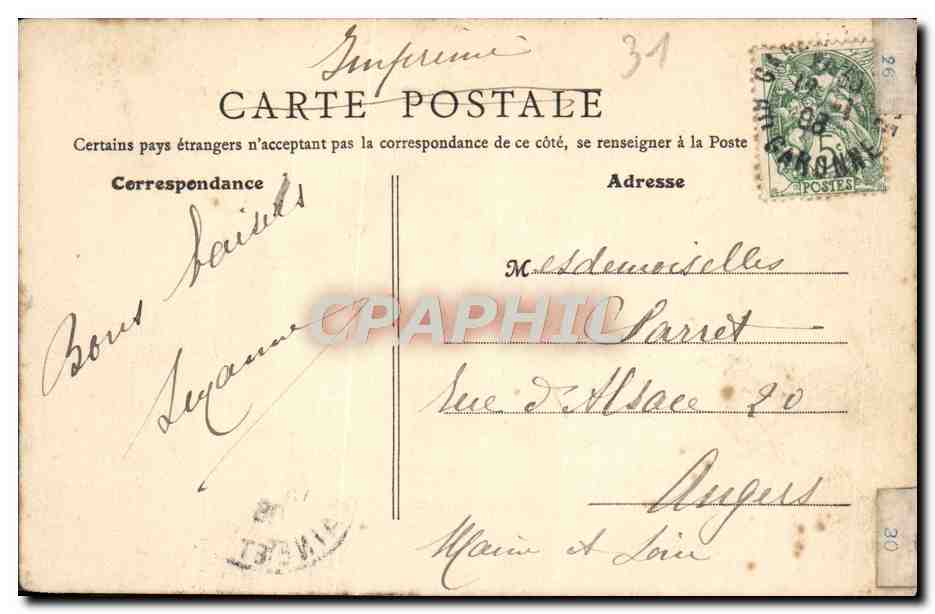 Imprimé
31
CARTE POSTALE
Certains pays étrangers n'acceptant pas la correspondance de ce côté, se renseigner à la Poste
Correspondance
Adresse
GARONNE
5
POSTES
26
Bons baisers
Suzanne
Mesdemoiselles
CPAPHIL
Parret
Rue d'Alsace 20
Angers
Maine et Loire
30